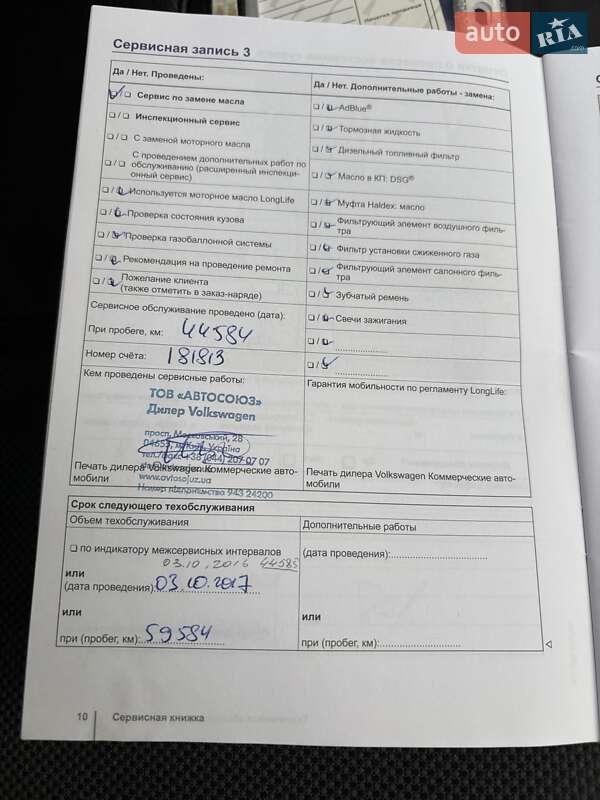 auto RIA .com
Сервисная запись 3
Да / Нет. Проведены:
Да / Нет. Дополнительные работы - замена:
❑/❑ Сервис по замене масла
❑/❑ Инспекционный сервис
❑/❑ С заменой моторного масла
❑/❑ С проведением дополнительных работ по
обслуживанию (расширенный инспекци-
онный сервис)
❑/❑ Используется моторное масло LongLife
❑/❑ Проверка состояния кузова
❑/❑ Проверка газобаллонной системы
❑/❑ Рекомендация на проведение ремонта
❑/❑ Пожелание клиента
(также отметить в заказ-наряде)
❑/❑ AdBlue®
❑/❑ Тормозная жидкость
❑/❑ Дизельный топливный фильтр
❑/❑ Масло в КП: DSG®
❑/❑ Муфта Haldex: масло
❑/❑ Фильтрующий элемент воздушного филь-
тра
❑/❑ Фильтр установки сжиженного газа
❑/❑ Фильтрующий элемент салонного филь-
тра
❑/❑ Зубчатый ремень
❑/❑ Свечи зажигания
❑/❑ ....................
❑/❑ ....................
Сервисное обслуживание проведено (дата):
При пробеге, км: 44584
Номер счёта: 181813
Кем проведены сервисные работы:
ТОВ «АВТОСОЮЗ»
Дилер Volkswagen
просп. Московський, 28
04655, м. Київ, Україна
тел./факс +38 (044) 207 07 07
www.avtosojuz.ua
943 24200
Печать дилера Volkswagen Коммерческие авто-
мобили
Гарантия мобильности по регламенту LongLife:
Печать дилера Volkswagen Коммерческие авто-
мобили
Срок следующего техобслуживания
Объем техобслуживания
Дополнительные работы
❑ по индикатору межсервисных интервалов
03.10.2016 44585
или
(дата проведения): 03.10.2017
или
при (пробег, км): 59584
(дата проведения):........................
или
при (пробег, км):........................
10
Сервисная книжка